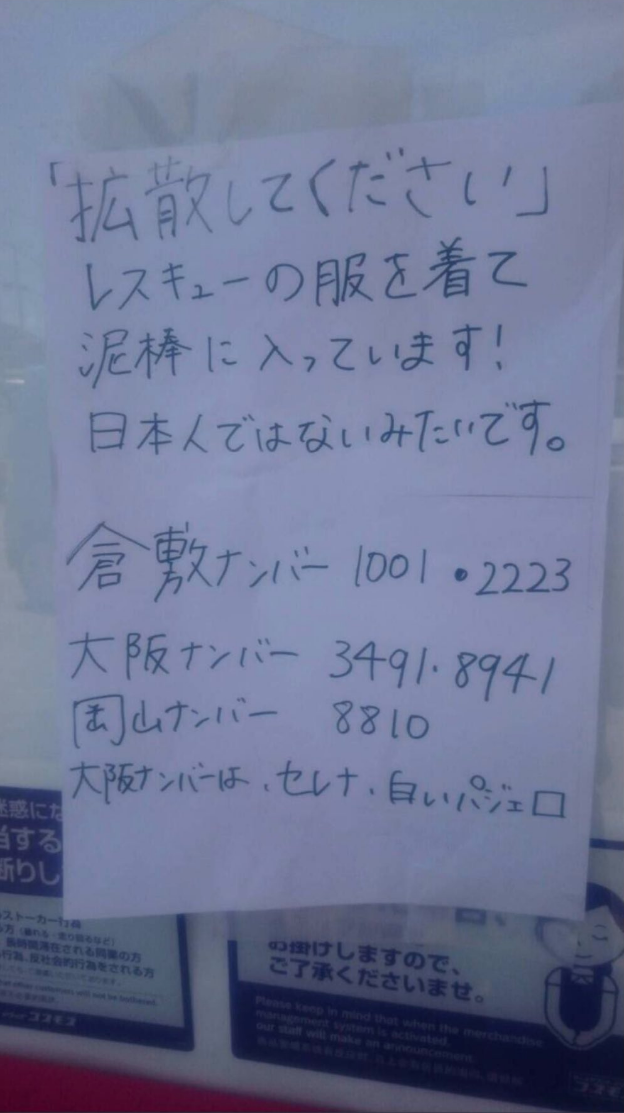 「拡散してください」
レスキューの服を着て
泥棒に入っています！
日本人ではないみたいです。
倉敷ナンバー 1001・2223
大阪ナンバー 3491・8941
岡山ナンバー 8810
大阪ナンバーは、セレナ、白いパジェロ
迷惑にな
当する
断りし
ストーカー行為
長時間滞在される同業の方
行為、反社会的行為をされる方
コスモス
お掛けしますので、
ご了承くださいませ。
Please keep in mind that when the merchandise
management system is activated,
our staff will make an announcement.
コスモス